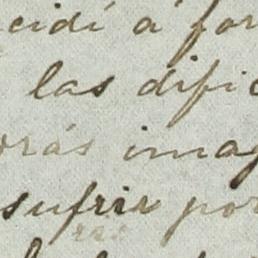 cidí á for
las dific
orás imag
sufrir por